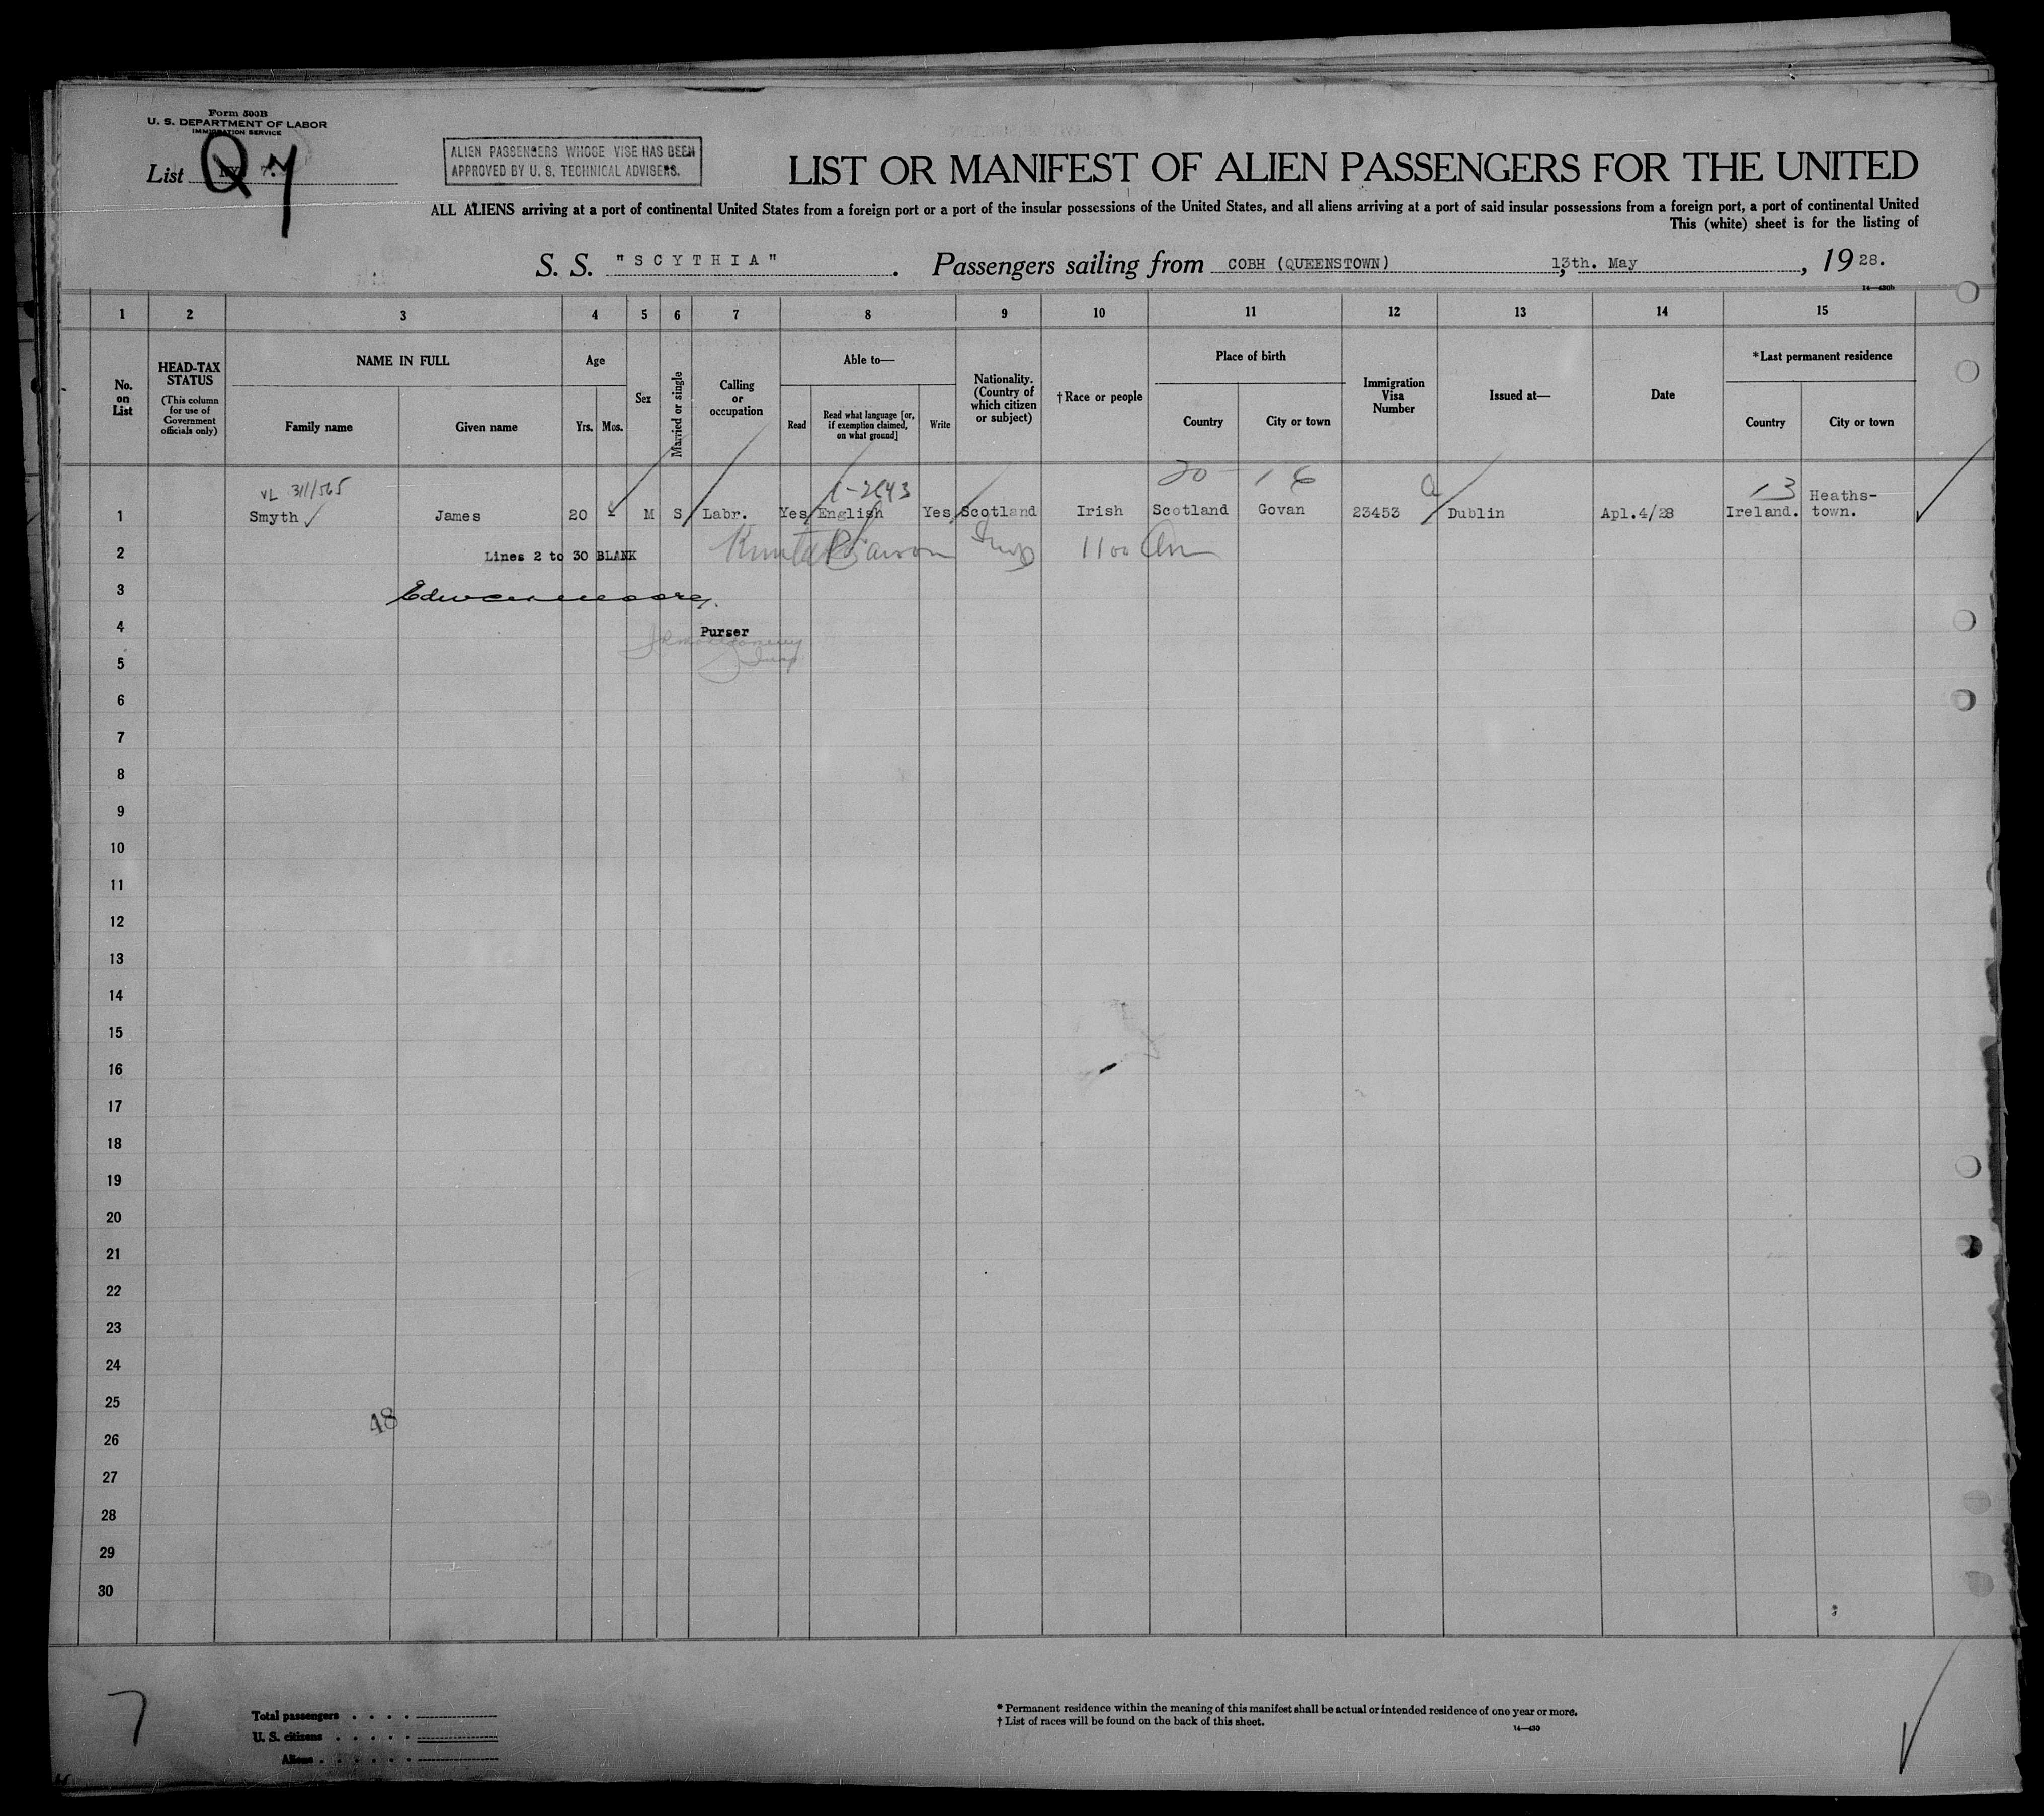 Form 500B
U. S. DEPARTMENT OF LABOR
IMMIGRATION SERVICE
List Q 7
ALIEN PASSENGERS WHOSE VISE HAS BEEN
APPROVED BY U. S. TECHNICAL ADVISERS.
LIST OR MANIFEST OF ALIEN PASSENGERS FOR THE UNITED
ALL ALIENS arriving at a port of continental United States from a foreign port or a port of the insular possessions of the United States, and all aliens arriving at a port of said insular possessions from a foreign port, a port of continental United
This (white) sheet is for the listing of
S. S. "SCYTHIA". Passengers sailing from COBH (QUEENSTOWN), 13th. May, 1928.
14—430b
1 2 3 4 5 6 7 8 9 10 11 12 13 14 15
No. on List
HEAD-TAX STATUS (This column for use of Government officials only)
NAME IN FULL
Family name Given name
Age
Yrs. Mos.
Sex
Married or single
Calling or occupation
Able to—
Read Read what language [or, if exemption claimed, on what ground] Write
Nationality. (Country of which citizen or subject)
†Race or people
Place of birth
Country City or town
Immigration Visa Number
Issued at—
Date
*Last permanent residence
Country City or town
VL 311/565 20 - 16 a 13
1 Smyth James 20 - M S Labr. Yes English Yes Scotland Irish Scotland Govan 23453 Dublin Apl.4/28 Ireland. Heaths-town.
2 Lines 2 to 30 BLANK Insp 1100 Am
3
4 Purser
5 Insp
6
7
8
9
10
11
12
13
14
15
16
17
18
19
20
21
22
23
24
25
48
26
27
28
29
30
7
Total passengers . . . .
U. S. citizens . . . . .
Aliens . . . . . .
* Permanent residence within the meaning of this manifest shall be actual or intended residence of one year or more.
† List of races will be found on the back of this sheet.
14—430